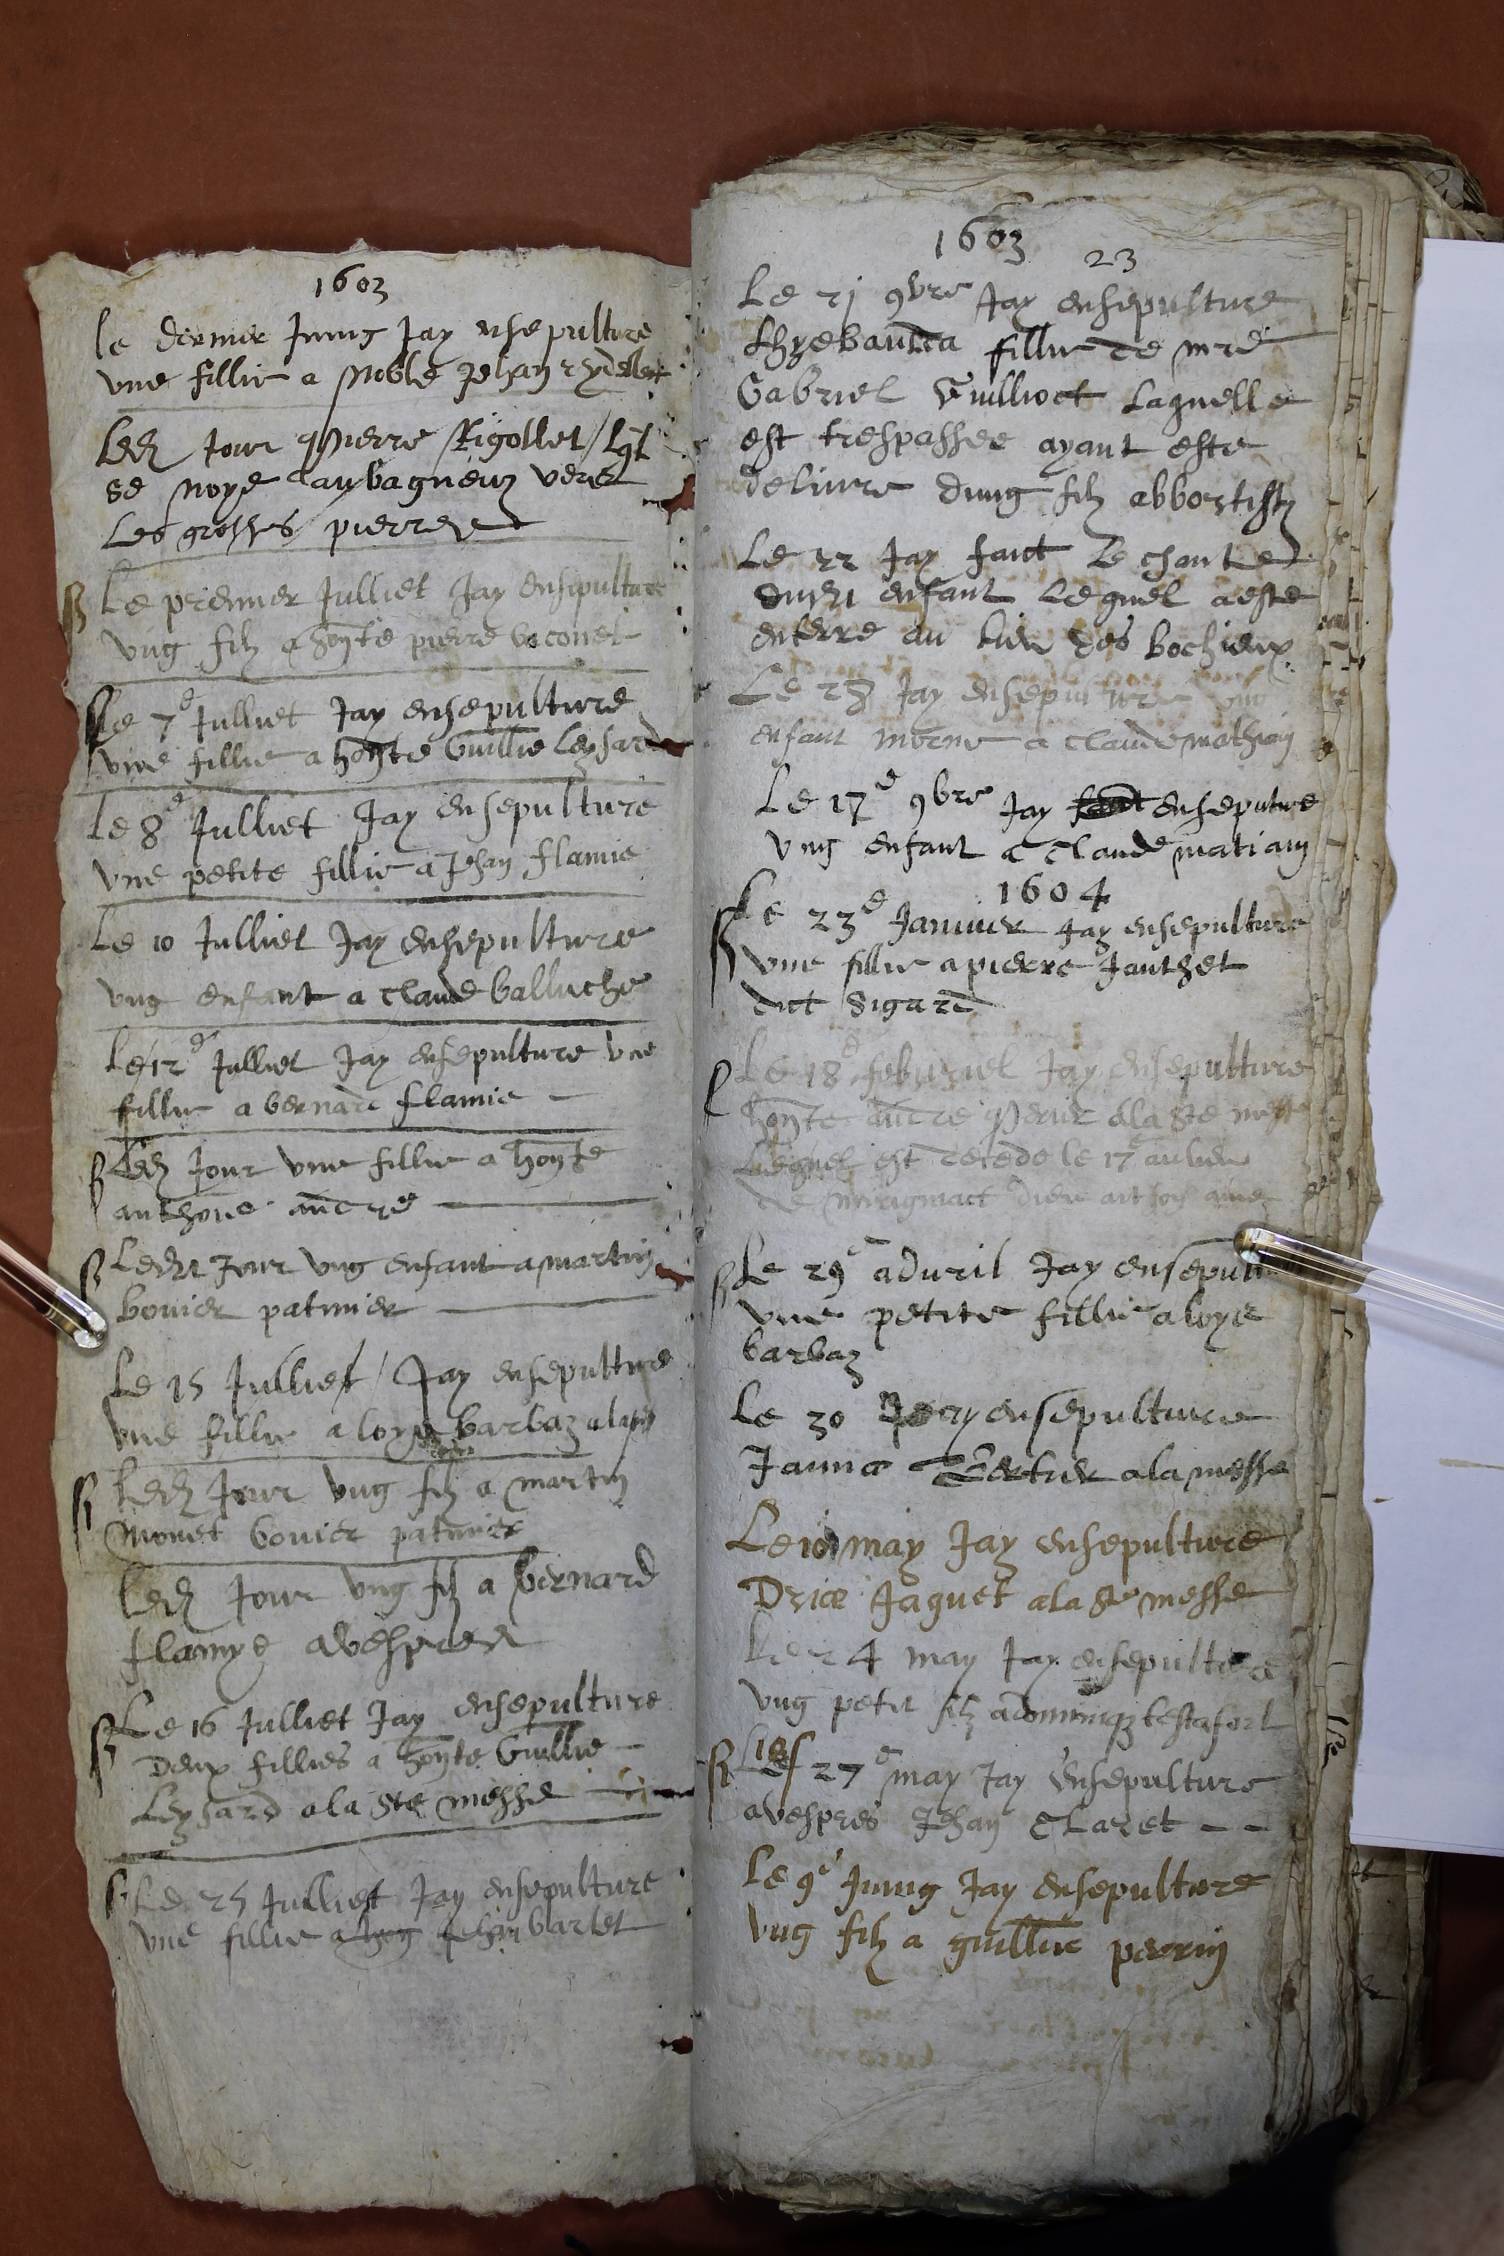 1603
le dernier Juing Jay ensepulture
une fillie a Noble Jehan
Led Jour Pierre Rigollet / lqt
se noye au bagneux vers
Les grosses pierres
Le premier Julliet Jay ensepulture
ung filz a honte pierre
Le 7e Julliet Jay ensepulture
une fillie a honte Guillie Leysard
Le 8e Julliet Jay ensepulture
une petite fillie a Jehan flamie
Le 10 Julliet Jay ensepulture
ung enfant a Claude balluche
Le 12e Julliet Jay ensepulture une
fillie a bernard flamie
Led Jour une fillie a honte
anthoine andre
Ledit Jour ung enfant a martin
bovier patinier
Le 15 Julliet / Jay ensepulture
une fillie a loys barbaz
Led Jour ung filz a martin
Monet bovier patinier
Led Jour ung filz a bernard
flamye a vespres
Le 16 Julliet Jay ensepulture
Deux fillies a honte Guillie
Leysard a la ste messe
Le 25 Julliet Jay ensepulture
une fillie a Jehan barlet
1603
23
Le 21 9bre Jay ensepulture
thyebauda fillie de mre
Gabriel Guilliot Laquelle
est trespassee ayant este
delivre dung filz abbortifz
Le 22 Jay faict le
dudit enfant Lequel a este
enterre au lieu des bochieux
Le 28 Jay ensepulture ung
enfant a Claude mathian
Le 17e 9bre Jay ensepulture
ung enfant a Claude matian
1604
Le 23e Januier Jay ensepulture
une fillie a pierre Janthet
dict sigard
Le 18e feburier Jay ensepulture
honte andre Perier a la ste messe
Lequel est decede le 17e au lieu
de dieu ait son ame
Le 29e advril Jay ensepult
une petite fillie a loys
barbaz
Le 30 Jay ensepulture
Janna a la messe
Le 10 may Jay ensepulture
Jaquet a la ste messe
Le 24 may Jay ensepulture
ung petit filz a dominiqz testafort
Le 27e may Jay ensepulture
a vespres Jehan Claret - -
Le 9e Juing Jay ensepulture
ung filz a guillie perrin